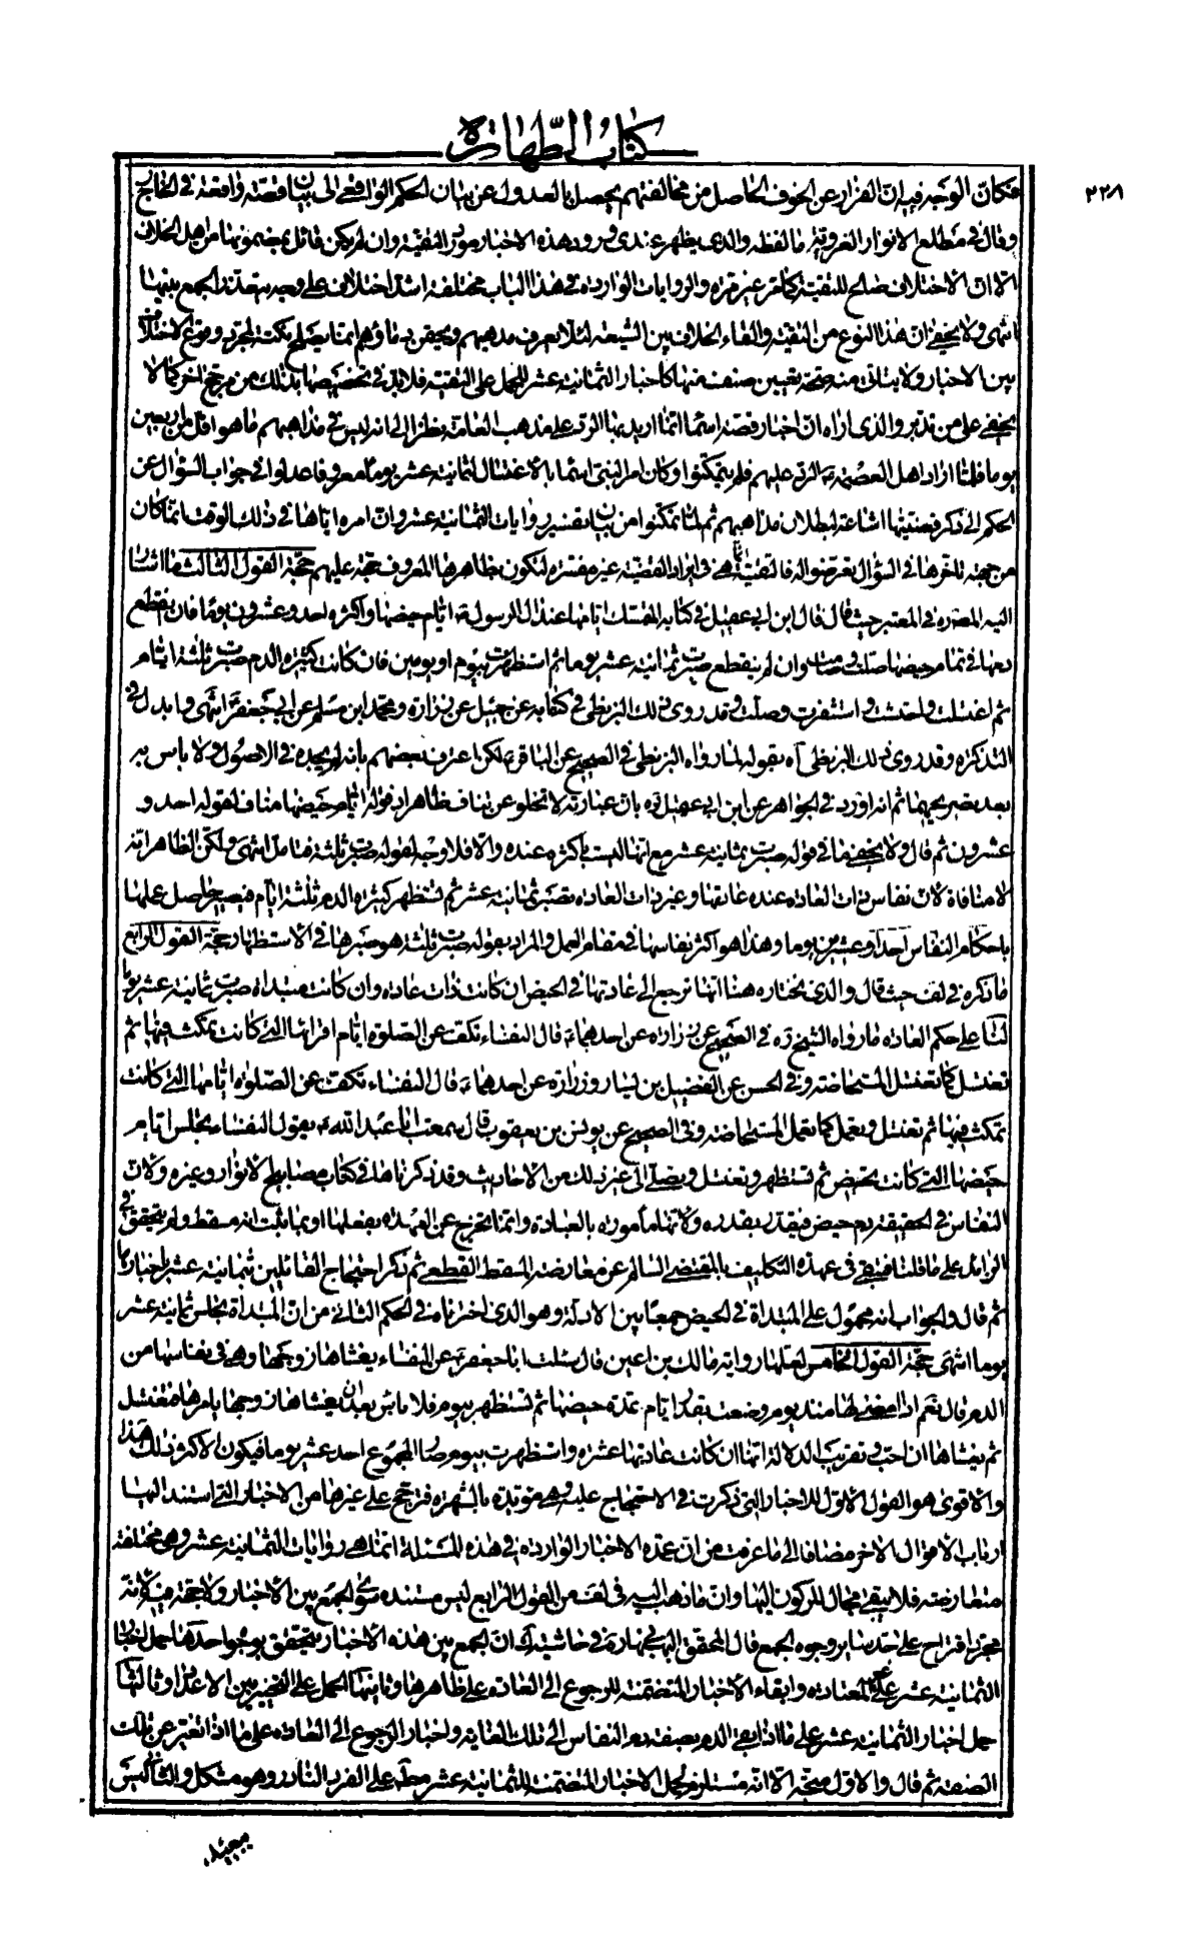 كتاب الطهارة
٢٢٨
فكان الوجه فيه ان الفرار عن الخوف الحاصل من مخالفتهم يحصل بالعدول عن بيان الحكم الواقعى الى بيان قصّة واقعة فى الخارج
وقال فى مطلع الانوار الغروية ما لفظه والذى يظهر عندى ورود هذه الاخبار مورد التقيّة وان لم يكن قائل بمضمونها من اهل الخلاف
الا ان الاختلاف صالح للتقيّة كما مر غير مرة والروايات الواردة فى هذا الباب مختلفة اشد اختلاف على وجه يتعذر الجمع بينها
انتهى ولا يخفى ان هذا النوع من التقيّة والقاء الخلاف بين الشيعة لئلا يعرف مذهبهم ويحقن به دماؤهم انما يصلح نكتة لمجرد وقوع الاختلاف
بين الاخبار ولا يتاتى منه صحة تعيين صنف منها كاخبار الثمانية عشر للحمل على التقيّة فلا بد فى تخصيصها بذلك من مرجح اخر كما لا
يخفى على من تدبر والذى اراه ان اخبار قصة اسماء انما اريد بها الرد على مذهب العامة نظرا الى انه ليس فى مذاهبهم ما هو اقل من اربعين
يوما فلما اراد اهل العصمة ع الرد عليهم فلم يتمكنوا وكان امر النبى اسماء بالاغتسال لثمانية عشر يوما معروفا عدلوا فى جواب السؤال عن
الحكم الى ذكر قضيتها اشاعة لبطلان مذاهبهم ثم لما تمكنوا من بيان تفسير روايات الثمانية عشر وان امره اياها فى ذلك الوقت انما كان
من جهة تاخرها فى السؤال تعرضوا له فالتقيّة انما هى فى ايراد القضية غير مفسرة لتكون بظاهرها المعروف حجة عليهم حجة القول الثالث ما اشار
اليه المصنف ره فى المعتبر حيث قال قال ابن ابى عقيل فى كتابه المتمسك ايامها عند ال الرسول ع ايام حيضها واكثره احد وعشرون يوما فان انقطع
دمها فى تمام حيضها صلت وصامت وان لم ينقطع صبرت ثمانية عشر يوما ثم استظهرت بيوم او يومين فان كانت كثيرة الدم صبرت ثلثة ايام
ثم اغتسلت واحتشت واستثفرت وصلت وقد روى ذلك البزنطى فى كتابه عن جميل عن زرارة ومحمد ابن مسلم عن ابى جعفر ع انتهى وما بدل فى
التذكرة وقد روى ذلك البزنطى اه بقوله لما رواه البزنطى فى الصحيح عن الباقر ع لكن اعترف بعضهم بانه لم يجده فى الاصول ولا باس به
بعد تصريحهما ثم انه اورد فى الجواهر عن ابن ابى عقيل ره بان عبارته لا تخلو عن تناف ظاهر اذ قوله ايام حيضها مناف لقوله احد و
عشرون ثم قال ولا يخفى ما فى قوله صبرت ثمانية عشر مع انها ليست باكثره عنده والا فلا وجه لقوله صبرت ثلثة فتامل انتهى ولكن الظاهر انه
لا منافاة لان نفاس ذات العادة عنده عادتها وغير ذات العادة تصبر ثمانية عشر ثم تستظهر كثيرة الدم ثلثة ايام فيصير حاصل عملها
باحكام النفاس احدا وعشرين يوما وهذا هو اكثر نفاسها فى مقام العمل والمراد بقوله صبرت ثلثة هو صبرها فى الاستظهار حجة القول الرابع
ما ذكره فى لف حيث قال والذى نختاره هنا انها ترجع الى عادتها فى الحيض ان كانت ذات عادة وان كانت مبتداة صبرت ثمانية عشر يوما
لنا على حكم العادة ما رواه الشيخ ره فى الصحيح عن زرارة عن احدهما ع قال النفساء تكف عن الصلوة ايام اقرائها التى كانت تمكث فيها ثم
تغتسل كما تغتسل المستحاضة وفى الحسن عن الفضيل بن يسار وزرارة عن احدهما ع قال النفساء تكف عن الصلوة ايامها التى كانت
تمكث فيها ثم تغتسل وتعمل كما تعمل المستحاضة وفى الصحيح عن يونس بن يعقوب قال سمعت ابا عبد الله ع يقول النفساء تجلس ايام
حيضها التى كانت تحيض ثم تستظهر وتغتسل وتصلى الى غير ذلك من الاحاديث وقد ذكرناها فى كتاب مصابيح الانوار وغيره ولان
النفاس فى الحقيقة دم حيض فيقدر بقدره ولانها مامورة بالعبادة وانما تخرج عن العهدة بفعلها او بما يثبت انه مسقط ولم يتحقق فى
الزائد على ما قلنا فتبقى فى عهدة التكليف بالمقتضى السالم عن معارضة المسقط القطعى ثم ذكر احتجاج القائلين بثمانية عشر باخبارها
ثم قال والجواب انه محمول على المبتداة فى الحيض جمعا بين الادلة وهو الذى اخترناه فى الحكم الثانى من ان المبتداة تجلس ثمانية عشر
يوما انتهى حجة القول الخامس لعلها رواية مالك بن اعين قال سئلت ابا جعفر ع عن النفساء يغشاها زوجها وهى فى نفاسها من
الدم قال نعم اذا مضى لها منذ يوم وضعت بقدر ايام عدة حيضها ثم تستظهر بيوم فلا باس بعد ان يغشاها زوجها يامرها فتغتسل
ثم يغشاها ان احب وتقريب الدلالة انها ان كانت عادتها عشرة واستظهرت بيوم صار المجموع احد عشر يوما فيكون الاكثر ذلك هذا
والاقوى هو القول الاول للاخبار التى ذكرت فى الاحتجاج عليه وهى مؤيدة بالشهرة فترجح على غيرها من الاخبار التى استند اليها
ارباب الاقوال الاخر مضافا الى ما عرفت من ان عمدة الاخبار الواردة فى هذه المسئلة انما هى روايات الثمانية عشر وهى مختلفة
متعارضة فلا يبقى مجال للركون اليها وان ما ذهب اليه فى لف من القول الرابع ليس مستنده سوى الجمع بين الاخبار ولا حجة فيه لانه
مجرد اقتراح على حد سائر وجوه الجمع قال المحقق البهبهانى ره فى حاشية ك ان الجمع بين هذه الاخبار يتحقق بوجوه احدها حمل اخبار
الثمانية عشر على غير المعتادة وابقاء الاخبار المتضمنة للرجوع الى العادة على ظاهرها وثانيها الحمل على التخيير بين الاعداد وثالثها
حمل اخبار الثمانية عشر على ما اذا بقى الدم بصفة دم النفاس الى تلك الغاية واخبار الرجوع الى العادة على ما اذا تغير عن تلك
الصفة ثم قال والاول متجه الا انه مستلزم لحمل الاخبار المتضمنة للثمانية عشر مط على الفرد النادر وهو مشكل والثانى ليس
ببعيد